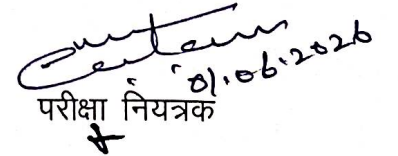 01.06.2026
परीक्षा नियत्रक